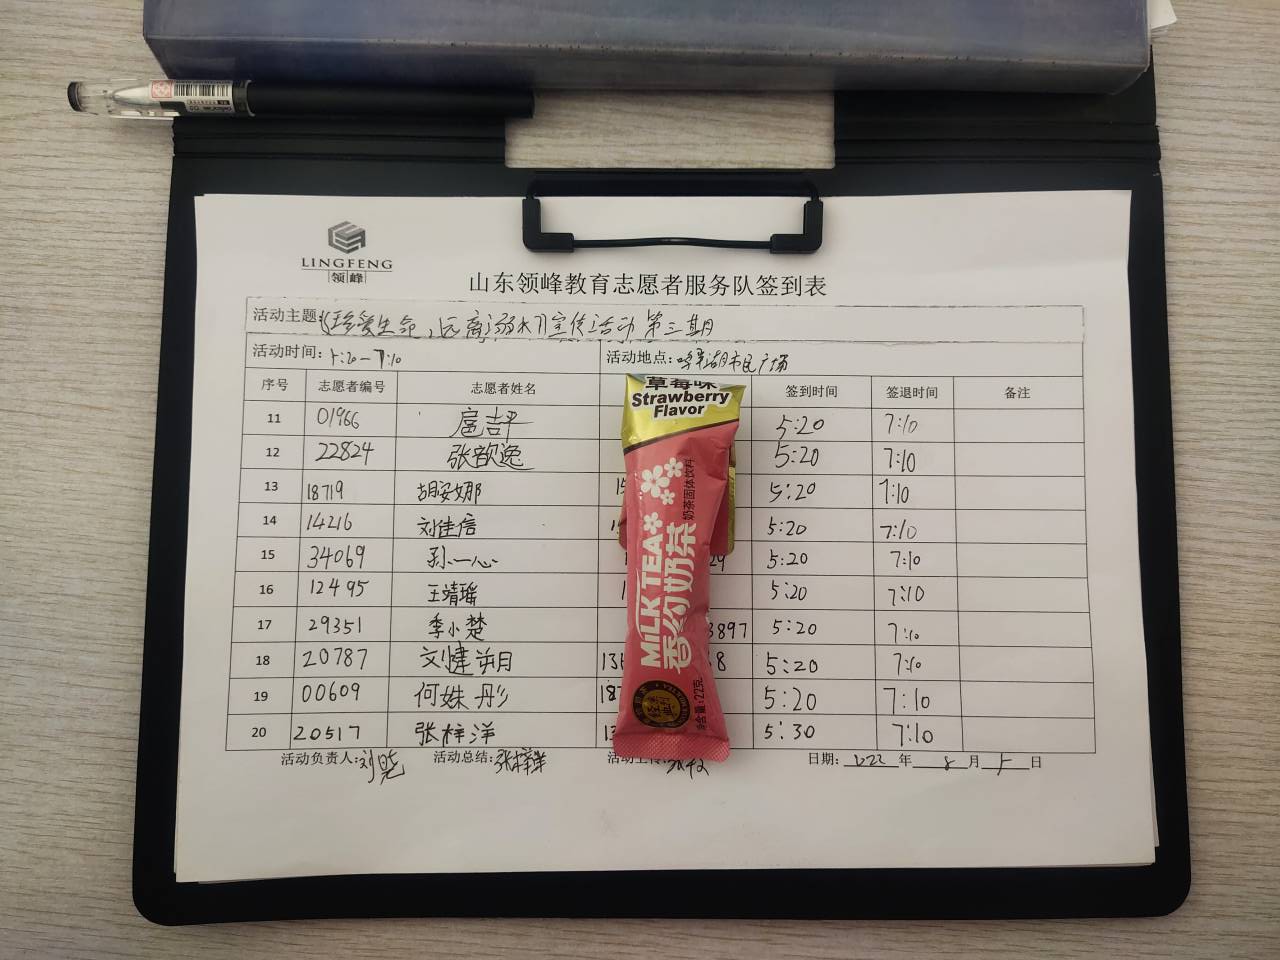 LINGFENG
领峰
山东领峰教育志愿者服务队签到表
活动主题:《珍爱生命,远离溺水》宣传活动 第三期
活动时间: 5:20-7:10 活动地点: 市民广场
序号 志愿者编号 志愿者姓名 签到时间 签退时间 备注
11 01966 扈吉平 5:20 7:10
12 22824 张歆逸 5:20 7:10
13 18719 胡安娜 5:20 7:10
14 14216 刘佳信 5:20 7:10
15 34069 孙一心 29 5:20 7:10
16 12495 王靖瑶 5:20 7:10
17 29351 李小楚 3897 5:20 7:10
18 20787 文健 5:20 7:10
19 00609 何姝彤 5:20 7:10
20 20517 张梓洋 5:30 7:10
活动负责人: 刘晓 活动总结: 张梓洋 日期: 2022 年 8 月 5 日
草莓味
Strawberry
Flavor
MiLK TEA
香约奶茶
奶茶固体饮料
净含量:22克